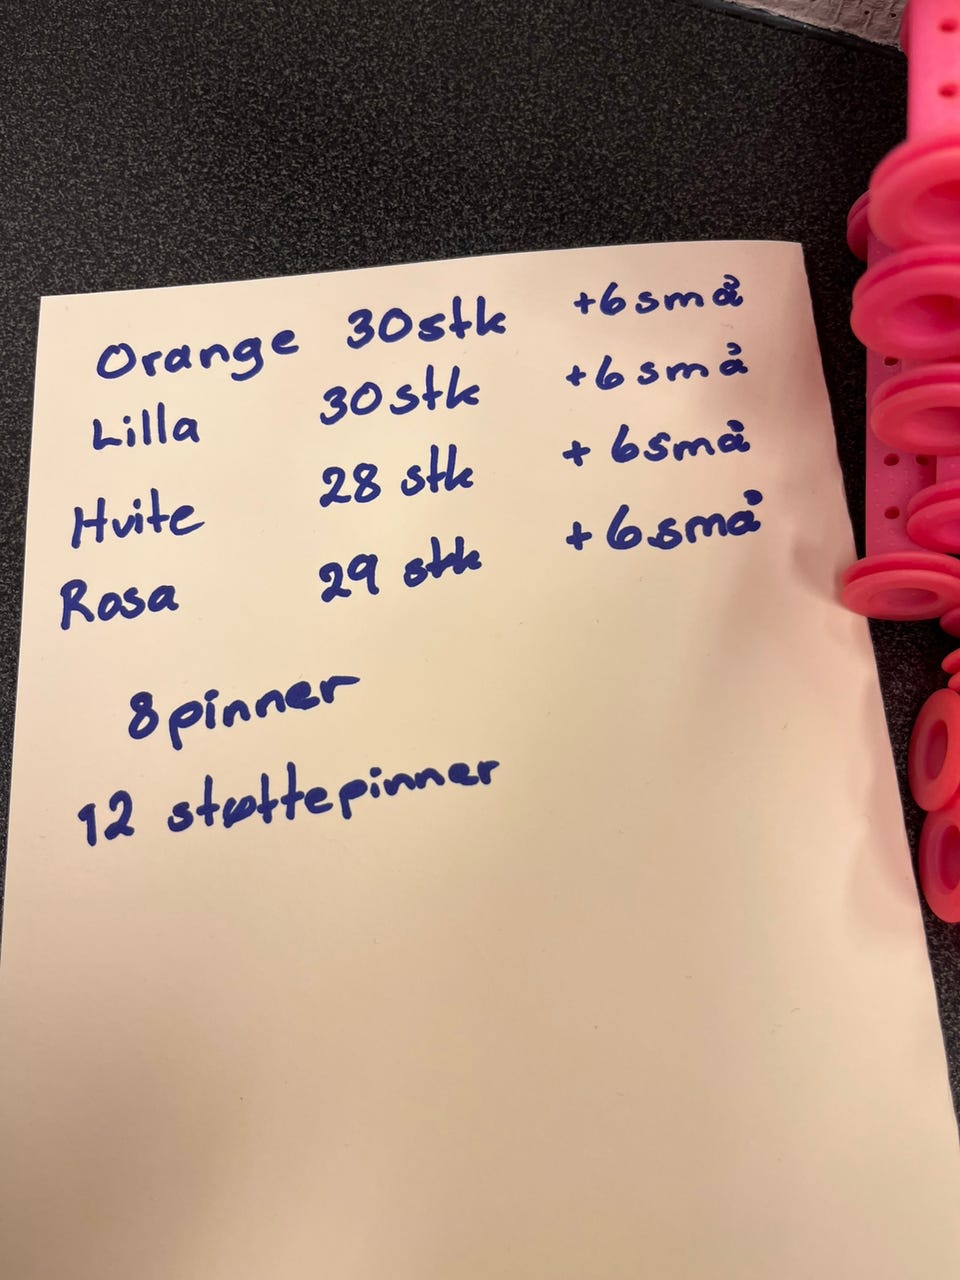 Orange 30stk +6små
Lilla 30stk +6små
Hvite 28 stk + 6små
Rosa 29 stk + 6små
8pinner
12 støttepinner